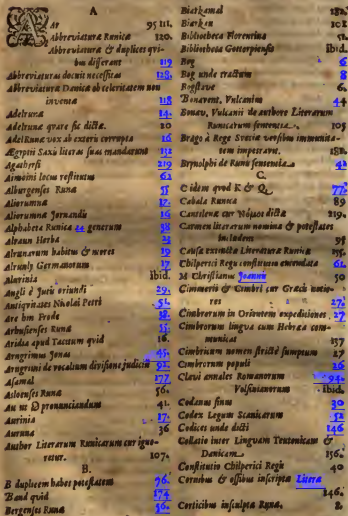 A
Ar 95 111.
Abbreviatura Runica 120.
Abbreviatura & duplices qvi-
bus differant 119
Abbreviaturas docuit necessitas 128.
Abbreviatura Danica ob celeritatem non
inventa 118
Adelruna 14.
Adelruna qvare sic dicta. 20
Adel Runa vox ab exteris corrupta 16
Ægyptii Saxis literas suas mandarunt 132
Agathersi 219
Aimoini locus restitutus 62
Alburgenses Runæ 55
Aliorumna 17.
Aliorumna Jornandis 16
Alphabeta Runica 24 generum 58
Alraun Herba 23
Alrunarum habitus & mores 19
Alrunæ Germanorum 17
Alurinia ibid.
Angli è Jutis oriundi 29.
Antiqvitates Nicolai Petri 51.
Are hin Frode 38.
Arhusienses Runæ 55.
Aridsa apud Tacitum qvid 16.
Arngrimus Jonas 45.
Arngrimi de vocalium divisione judicium 92.
Asamal 177
Asloenses Runæ 56.
Au ut O pronunciandum 41.
Aurinia 17.
Auruna 36
Author Literarum Runicarum cur igno-
retur. 107.
B.
B duplicem habet potestatem 76.
Band qvid 174
Bergenses Runæ 56.
Biarkamal 182.
Biarkan 102
Bibliotheca Florentina 51.
Bibliotheca Gottorpiensis ibid.
Bog 6
Bog unde tractum 8
Bogstave 6.
Bonavent. Vulcanius 44
Bonav. Vulcanii de authore Literarum
Runicarum sententia. 105
Brago à Rege Sveciæ versibus immunita-
tem impetravit. 182.
Brynolphi de Runis sententia. 42
C.
C idem qvod K & Q. 77.
Cabala Runica 89
Cantilena cur Νόμος dicta 219.
Carmen literarum nomina & potestates
includens 95
Causa extinctæ Literaturæ Runicæ 155.
Chilperici Regis constitutio emendata 61.
M Christianus Joannis 50
Cimmerii & Cimbri cur Græcis notio-
res 27
Cimbrorum in Orientem expeditiones. 27
Cimbrorum lingua cum Hebræa com-
municat 157
Cimbricum nomen strictè sumptum 27
Cimbrorum populi 26
Clavi annales Romanorum 94.
Volsiniorum ibid.
Codanus sinus 30
Codex Legum Scanicarum 52
Codices unde dicti 146
Collatio inter Lingvam Teutonicam &
Danicam. 156.
Constitutio Chilperici Regis 40
Cornibus & ossibus inscripta Litera
146.
Corticibus insculpta Runa. 8.